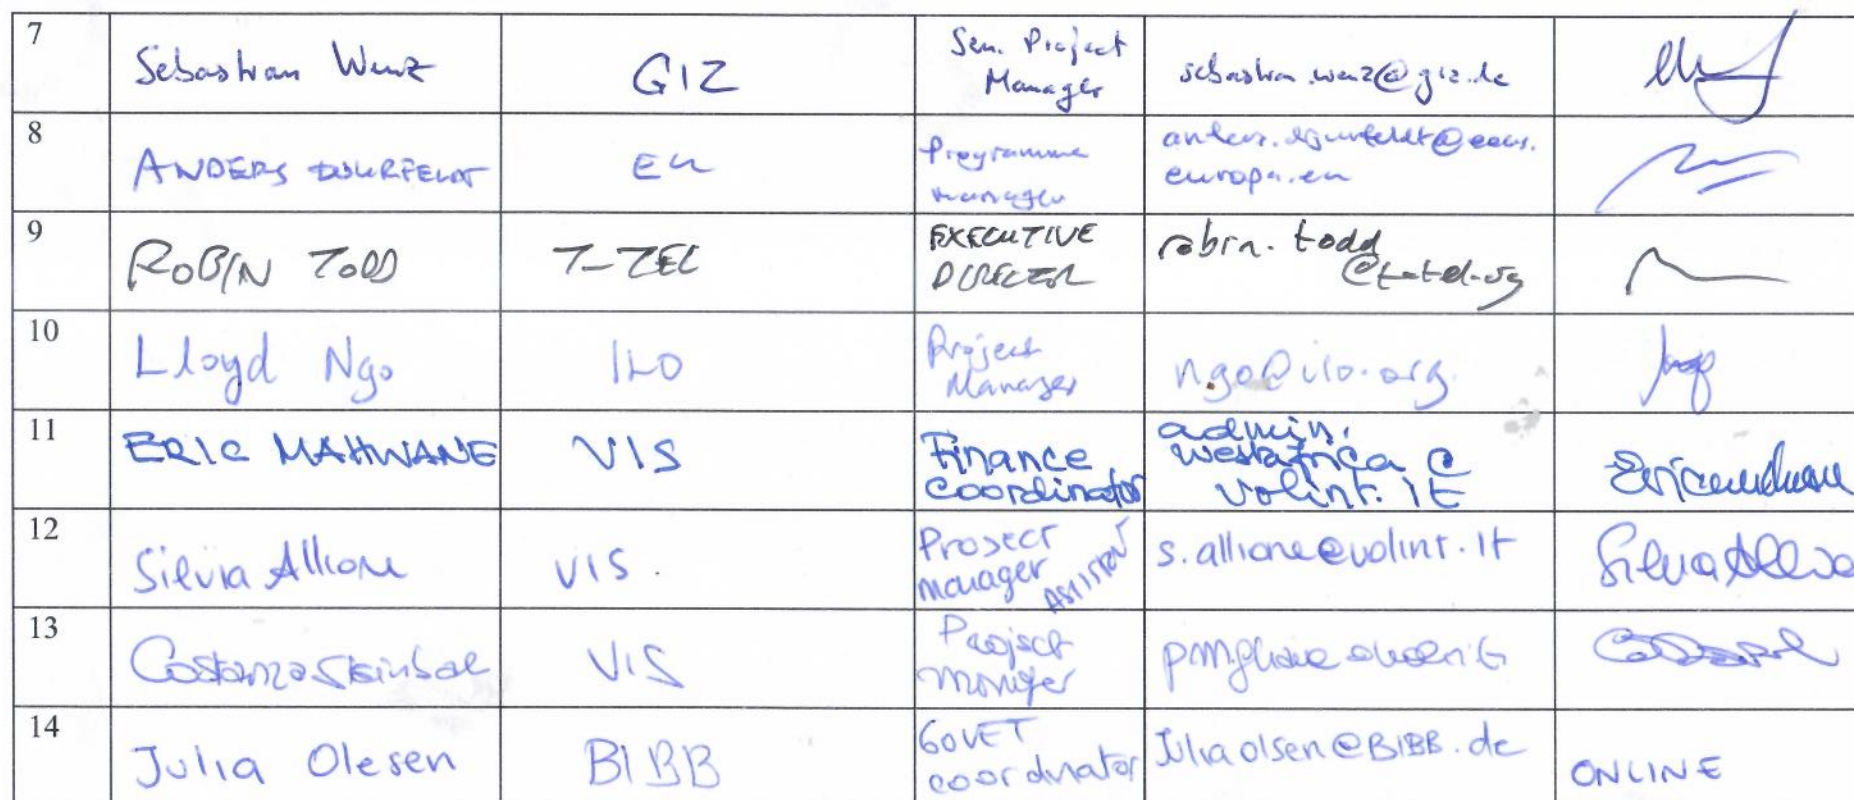 7 Sebastian Wenz GIZ Sen. Project
Manager sebastian.wenz@giz.de
8 ANDERS DJURFELDT EU Programme
manager anders.djurfeldt@eeas.
europa.eu
9 ROBIN TODD T-TEL EXECUTIVE
DIRECTOR robin.todd
@t-tel.org
10 Lloyd Ngo ILO Project
Manager ngo@ilo.org
11 ERIC MAHWANE VIS Finance
coordinator admin.
westafrica@
volint.it
12 Silvia Allione VIS. Project
manager
ASSISTANT s.allione@volint.it
13 Costanza VIS Project
Manager
14 Julia Olesen BIBB GOVET
coordinator Juliaolsen@BIBB.de ONLINE